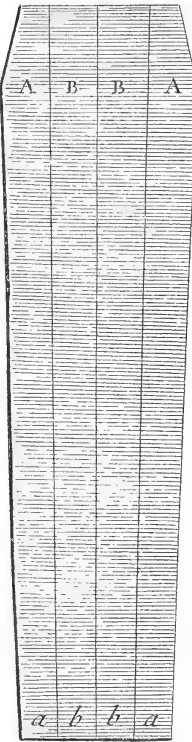 A B B A
a b b a